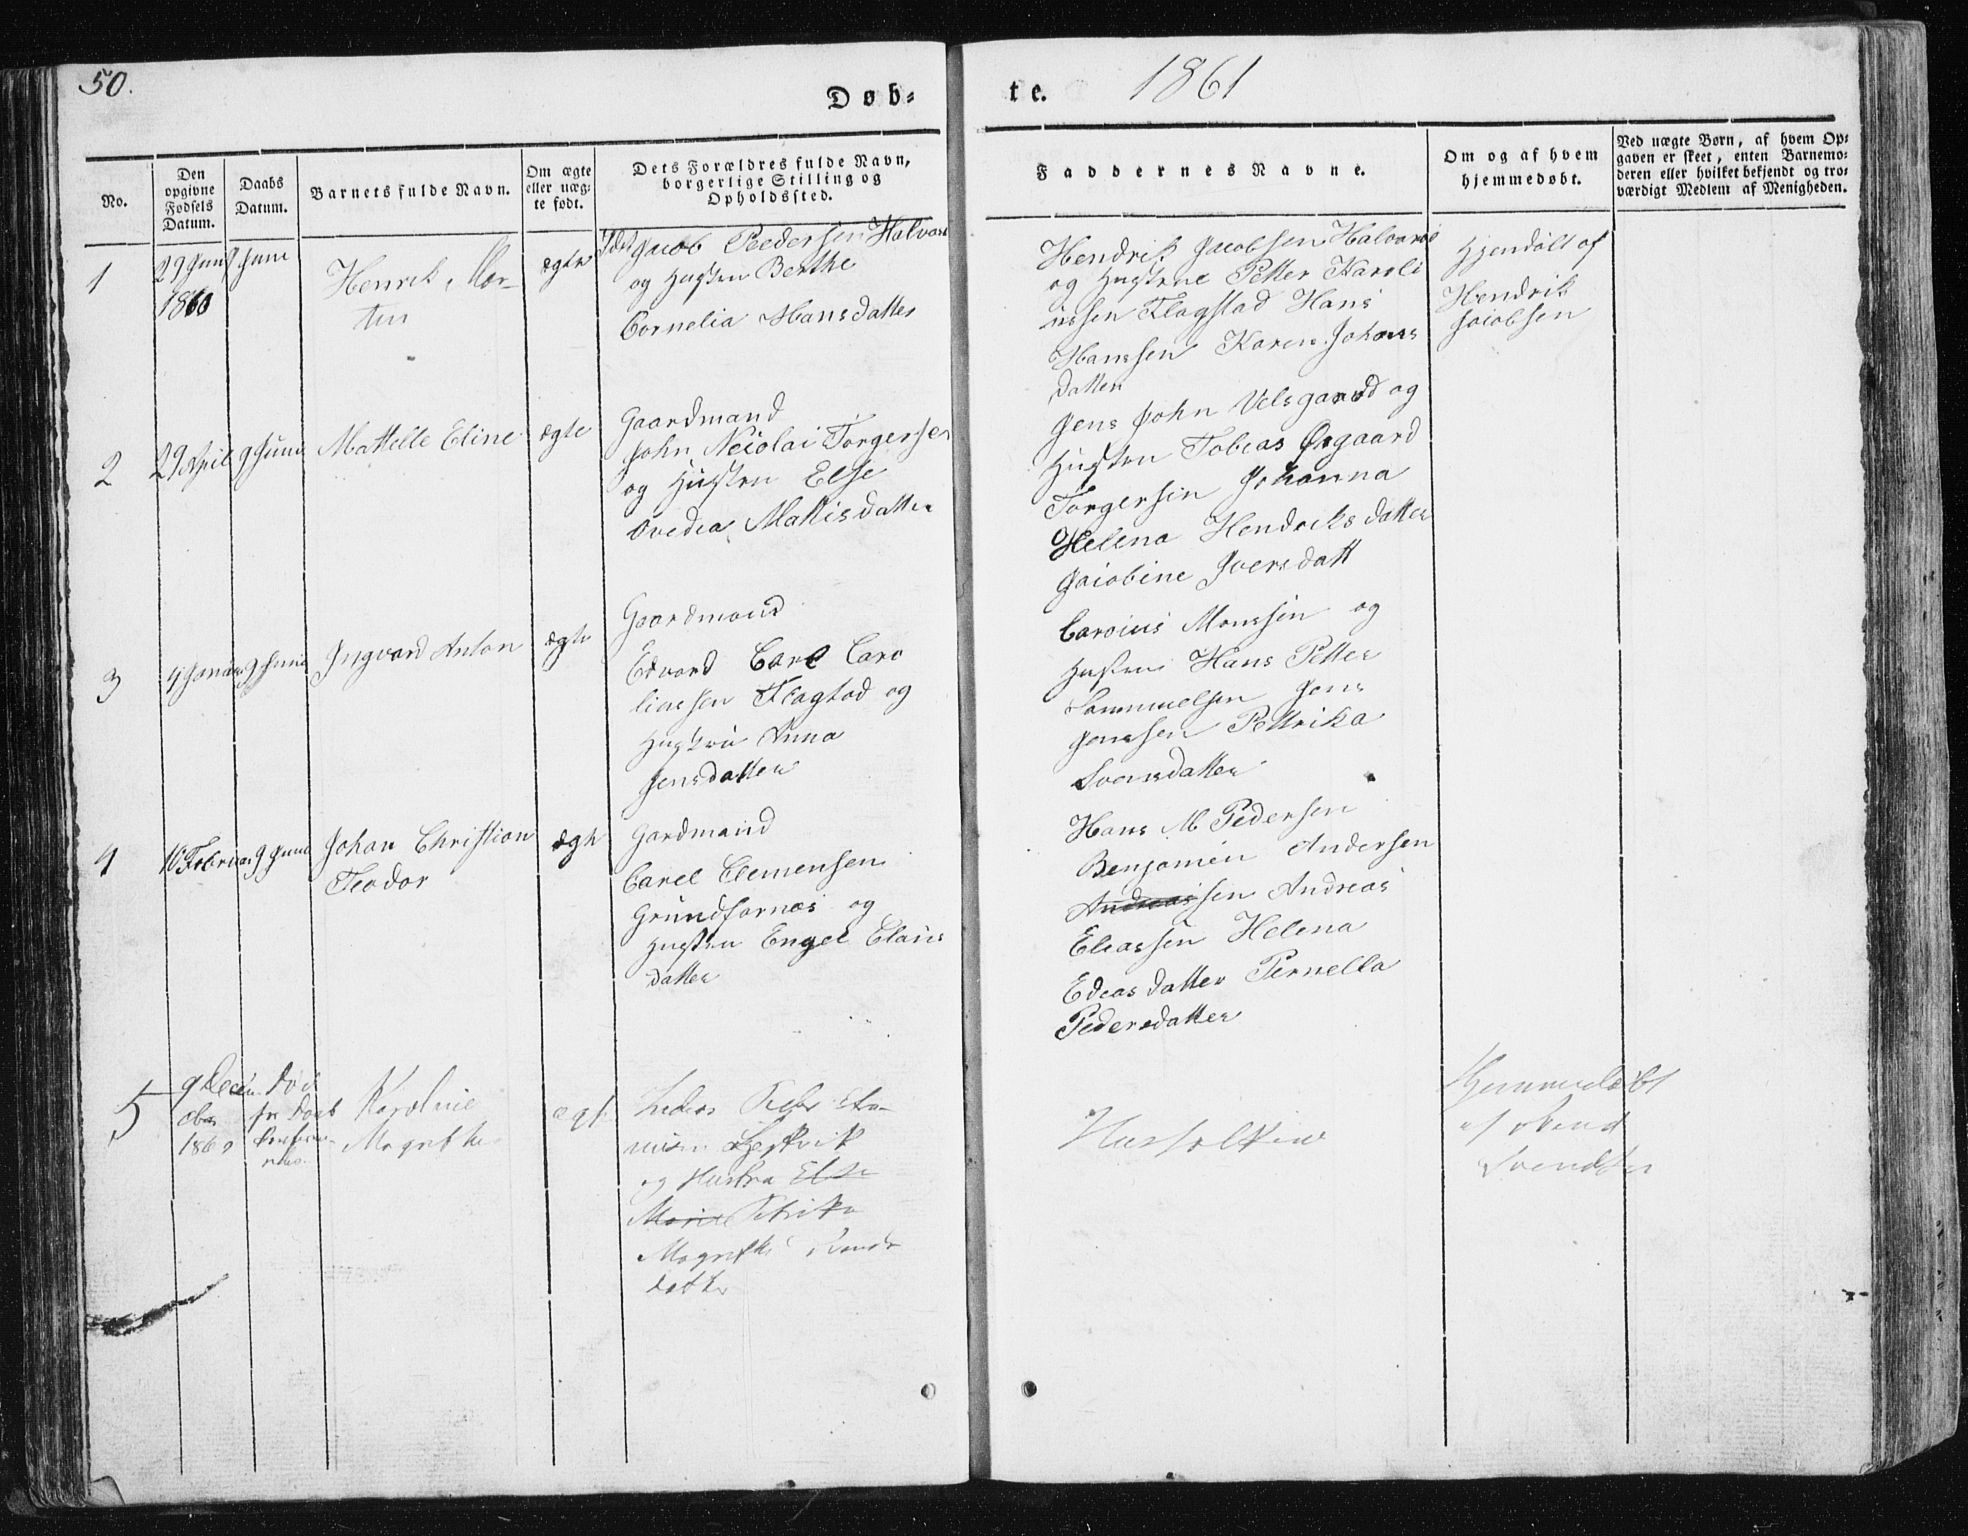 50.
Døb-
te.
1861
No.
Den
opgivne
Fødsels
Datum.
Daabs
Datum.
Barnets fulde Navn.
Om ægte
eller uæg-
te født.
Dets Forældres fulde Navn,
borgerlige Stilling og
Opholdssted.
Faddernes Navne.
Om og af hvem
hjemmedøbt.
Ved uægte Børn, af hvem Op-
gaven er skeet, enten Barnemo-
deren eller hvilket bekjendt og tro-
værdigt Medlem af Menigheden.
1
29 Juni
1860
9 Juni
Henrik Mor-
ten
ægte
Jacob Peedersen Halvars
og Hustru Berthe
Cornelia Hansdatter
Hendrik Jacobsen Halvarsø
og Hustrue Petter Karoli
ussen Flagstad Hans
Hanssen Karen Johans
datter
Hjemdøbt af
Hendrik
Jacobsen
2
29 April
9 Juni
Mattelle Eline
ægte
Gaardmand
John Neiolai Torgersen
og Hustru Else
Ovedia Mattisdatter
Jens John Velsgaard og
Hustru Tobias Øsgaard
Torgersen Johanna
Helena Hendriksdatter
Jacobine Iversdatt
3
4 Januar
9 Juni
Ingvard Anton
ægte
Gaardmand
Edvard Carl Caro
liussen Flagstad og
Hustru Anna
Jensdatter
Carolus Monssen og
Hustru Hans Petter
Sammuelsen Jens
Jenssen Pettrika
Svensdatter
4
10 Februar
9 Juni
Johan Christian
Teodor
ægte
Gardmand
Carel Clemensen
Grundfarnæs og
Hustru Engel Claus
datter
Hans M Pedersen
Benjamin Andersen
Andreassen Andreas
Eliassen Helena
Edeasdatter Pernella
Pedersdatter
5
9 Decem
ber
1860
Død
før Daab
Karoline
Magrethe
ægt.
Peder
Leknvik
og Hustru Else
Marie Petrika
Magrethe
datter
Husfolkene
Hjemmedøbt
af
Svendsen